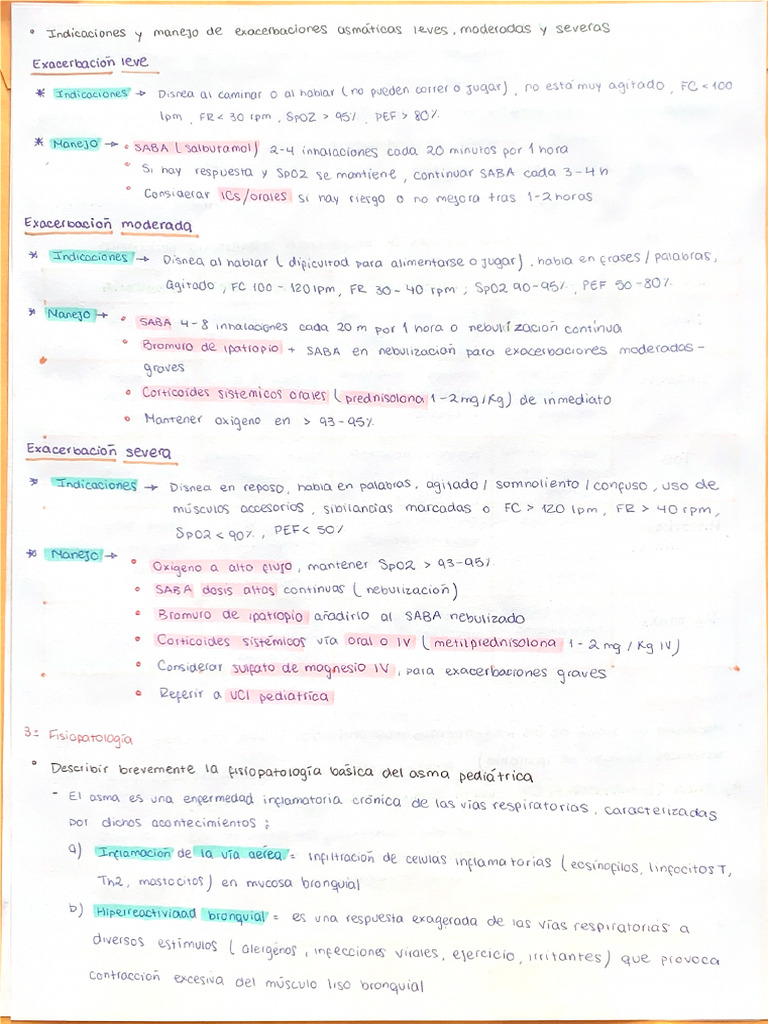 • Indicaciones y manejo de exacerbaciones asmáticas leves, moderadas y severas
Exacerbación leve
* Indicaciones → Disnea al caminar o al hablar (no pueden correr o jugar), no está muy agitado, FC < 100
lpm, FR < 30 rpm, SpO2 > 95%, PEF > 80%
* Manejo → • SABA (salbutamol) 2-4 inhalaciones cada 20 minutos por 1 hora
• Si hay respuesta y SpO2 se mantiene, continuar SABA cada 3-4 h
• Considerar ICs/orales si hay riesgo o no mejora tras 1-2 horas
Exacerbación moderada
* Indicaciones → Disnea al hablar (dificultad para alimentarse o jugar), habla en frases / palabras,
agitado, FC 100 - 120 lpm, FR 30-40 rpm, SpO2 90-95%, PEF 50-80%
* Manejo → • SABA 4-8 inhalaciones cada 20 m por 1 hora o nebulización continua
• Bromuro de ipatropio + SABA en nebulización para exacerbaciones moderadas-
graves
• Corticoides sistemicos orales (prednisolona 1-2 mg/Kg) de inmediato
• Mantener oxigeno en > 93-95%
Exacerbación severa
* Indicaciones → Disnea en reposo, habla en palabras, agitado / somnoliento / confuso, uso de
músculos accesorios, sibilancias marcadas o FC > 120 lpm, FR > 40 rpm,
SpO2 < 90%, PEF < 50%
* Manejo → • Oxigeno a alto flujo, mantener SpO2 > 93-95%
• SABA dosis altas continuas (nebulización)
• Bromuro de ipatropio añadirlo al SABA nebulizado
• Corticoides sistémicos vía oral o IV (metilprednisolona 1-2 mg / Kg IV)
• Considerar sulfato de magnesio IV, para exacerbaciones graves
• Referir a UCI pediatrica
3= Fisiopatología
• Describir brevemente la fisiopatología básica del asma pediátrica
- El asma es una enfermedad inflamatoria crónica de las vías respiratorias, caracterizadas
por dichos acontecimientos:
a) Inflamación de la vía aerea = infiltración de celulas inflamatorias (eosinofilos, linfocitos T,
Th2, mastocitos) en mucosa bronquial
b) Hiperreactividad bronquial = es una respuesta exagerada de las vías respiratorias a
diversos estímulos (alergenos, infecciones virales, ejercicio, irritantes) que provoca
contracción excesiva del músculo liso bronquial